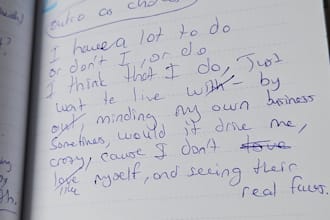 outro as cho
I have a lot to do
or don't I, or do
I think that I do, Just
wat te live with - by
out, minding my own business
Sometimes, would it drive me,
crazy, cause I don't love
love like myself, and seeing their
real faces.